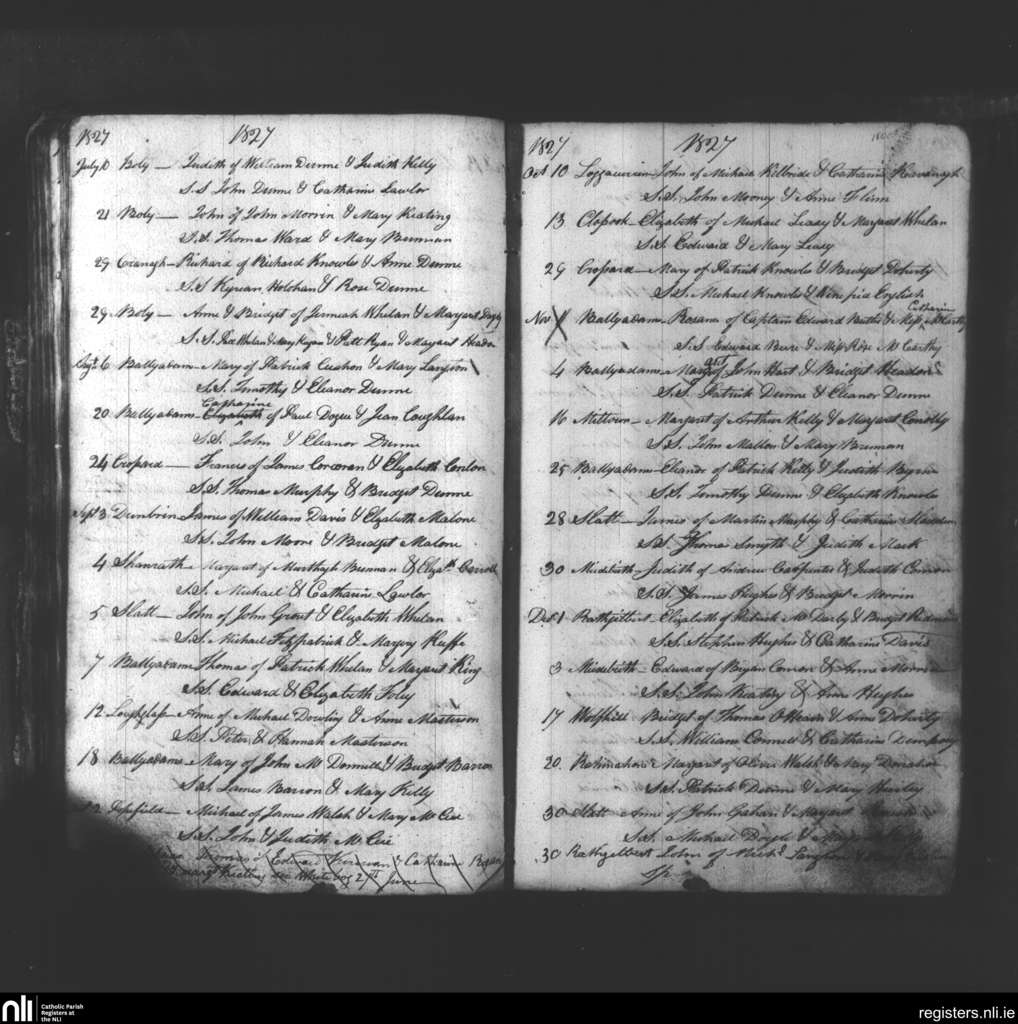 1827 1827
July 10 Boly — Judith of William Dunne & Judith Kelly
S.S John Dunne & Catharin Lawlor
21 Boly — John of John Morrin & Mary Keating
S.S. Thomas Ward & Mary Brennan
29 Cranagh — Richard of Richard Knowls & Anne Dunne
S.S Kyrian Holohan & Rose Dunne
29 Boly — Anne & Bridget of Jerimiah Whelan & Margaret
S.S. Whelan & Mary Ryan & Patt Ryan & Margaret Headon
Augt 6 Ballyadam — Mary of Patrick Cushon & Mary Langton
S.S. Timothy & Eleanor Dunne
Catharine
20 Ballyadams — Elizabeth of Paul Dogue & Jean Coughlan
S.S. John & Eleanor Dunne
24 Cropard — Francis of James Corcoran & Elizabeth Conlon
S.S. Thomas Murphy & Bridget Dunne
Sept 3 Dunbrin — James of William Davis & Elizabeth Malone
S.S. John Moore & Bridget Malone
4 Shanrath — Margaret of Murthagh Brennan & Elizath Carroll
S.S. Michael & Catharin Lawlor
5 Slatt — John of John Grout & Elizabeth Whelan
S.S. Michael Fitzpatrick & Margery Keeffe
7 Ballyadams Thomas of Patrick Whelan & Margaret King
S.S. Edward & Elizabeth Foley
12 Loughglass — Anne of Michael Dowling & Anne Masterson
S.S. Peter & Hannah Masterson
18 Ballyadams — Mary of John Mc Donnell & Bridget Barron
S.S. James Barron & Mary Kelly
Michael of James Walsh & Mary Mc Cue
S.S. John & Judith Mc Cue
Thomas of Edward & Catharine
Margt Keating see Whitebog 27th June
1827 1827
Oct 10 John of Michael Kilbride & Catharin Kavanagh
S.S. John Mooney & Anne Flinn
13 Clopook — Elizabeth of Michael Leasy & Margaret Whelan
S.S. Edward & Mary Leasy
29 Cropard — Mary of Patrick Knowls & Bridget Doherty
S.S. Michael Knowls & Winefrid English
Catharin
Nov 1 Ballyadam — Rosann of Captain Edward Butler & Miss McCarthy
S.S. Edward Bure & Miss Rose McCarthy
4 Ballyadams — Margaret of John Hart & Bridget Headon
S.S. Patrick Dunne & Eleanor Dunne
16 Milltown — Margaret of Arthur Kelly & Margaret Conolly
S.S. John Mallon & Mary Brennan
25 Ballyadams — Eleanor of Patrick Kelly & Judith Byrne
S.S. Timothy Dunne & Elizabeth Knowls
28 Slatt — James of Martin Murphy & Catharin
S.S. Thomas Smyth & Judith Mack
30 — Judith of Andrew Carpenter & Judith Conron
S.S. James Hughs & Bridget Morrin
Decr 1 Rathgilbert — Elizabeth of Patrick Mc Darby & Bridget Redmond
S.S. Stephen Hughs & Catharin Davis
3 — Edward of Bryan Conron & Anne Morrin
S.S. John Keating & Anne Hughes
17 Wolfhill Bridget of Thomas O'Hearn & Anne Doherty
S.S. William Connell & Catharin Dempsey
20 Margaret of Oliver Walsh & Mary Donahoe
S.S. Patrick Dunne & Mary Hurley
30 Slatt Anne of John Graham & Margaret
S.S. Michael Doyle &
30 Rathgilbert John of Michl Langton
Sp
nli
Catholic Parish
Registers at
the NLI
registers.nli.ie